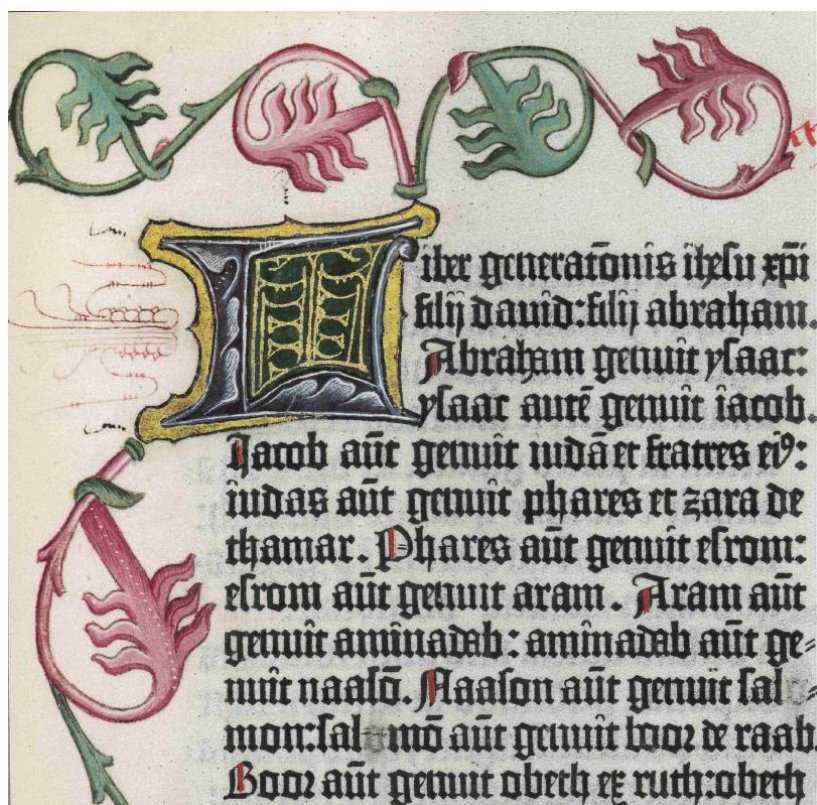 Liber generatōnis ihesu xp̄i
filij dauid: filij abraham.
Abraham genuit ysaac:
ysaac autē genuit iacob.
Jacob aūt genuit iudā et fratres eiꝰ:
iudas aūt genuit phares et zara de
thamar. Phares aūt genuit esrom:
esrom aūt genuit aram. Aram aūt
genuit aminadab: aminadab aūt ge-
nuit naasō. Naason aūt genuit sal-
mon: salmō aūt genuit booz de raab.
Booz aūt genuit obeth ex ruth: obeth